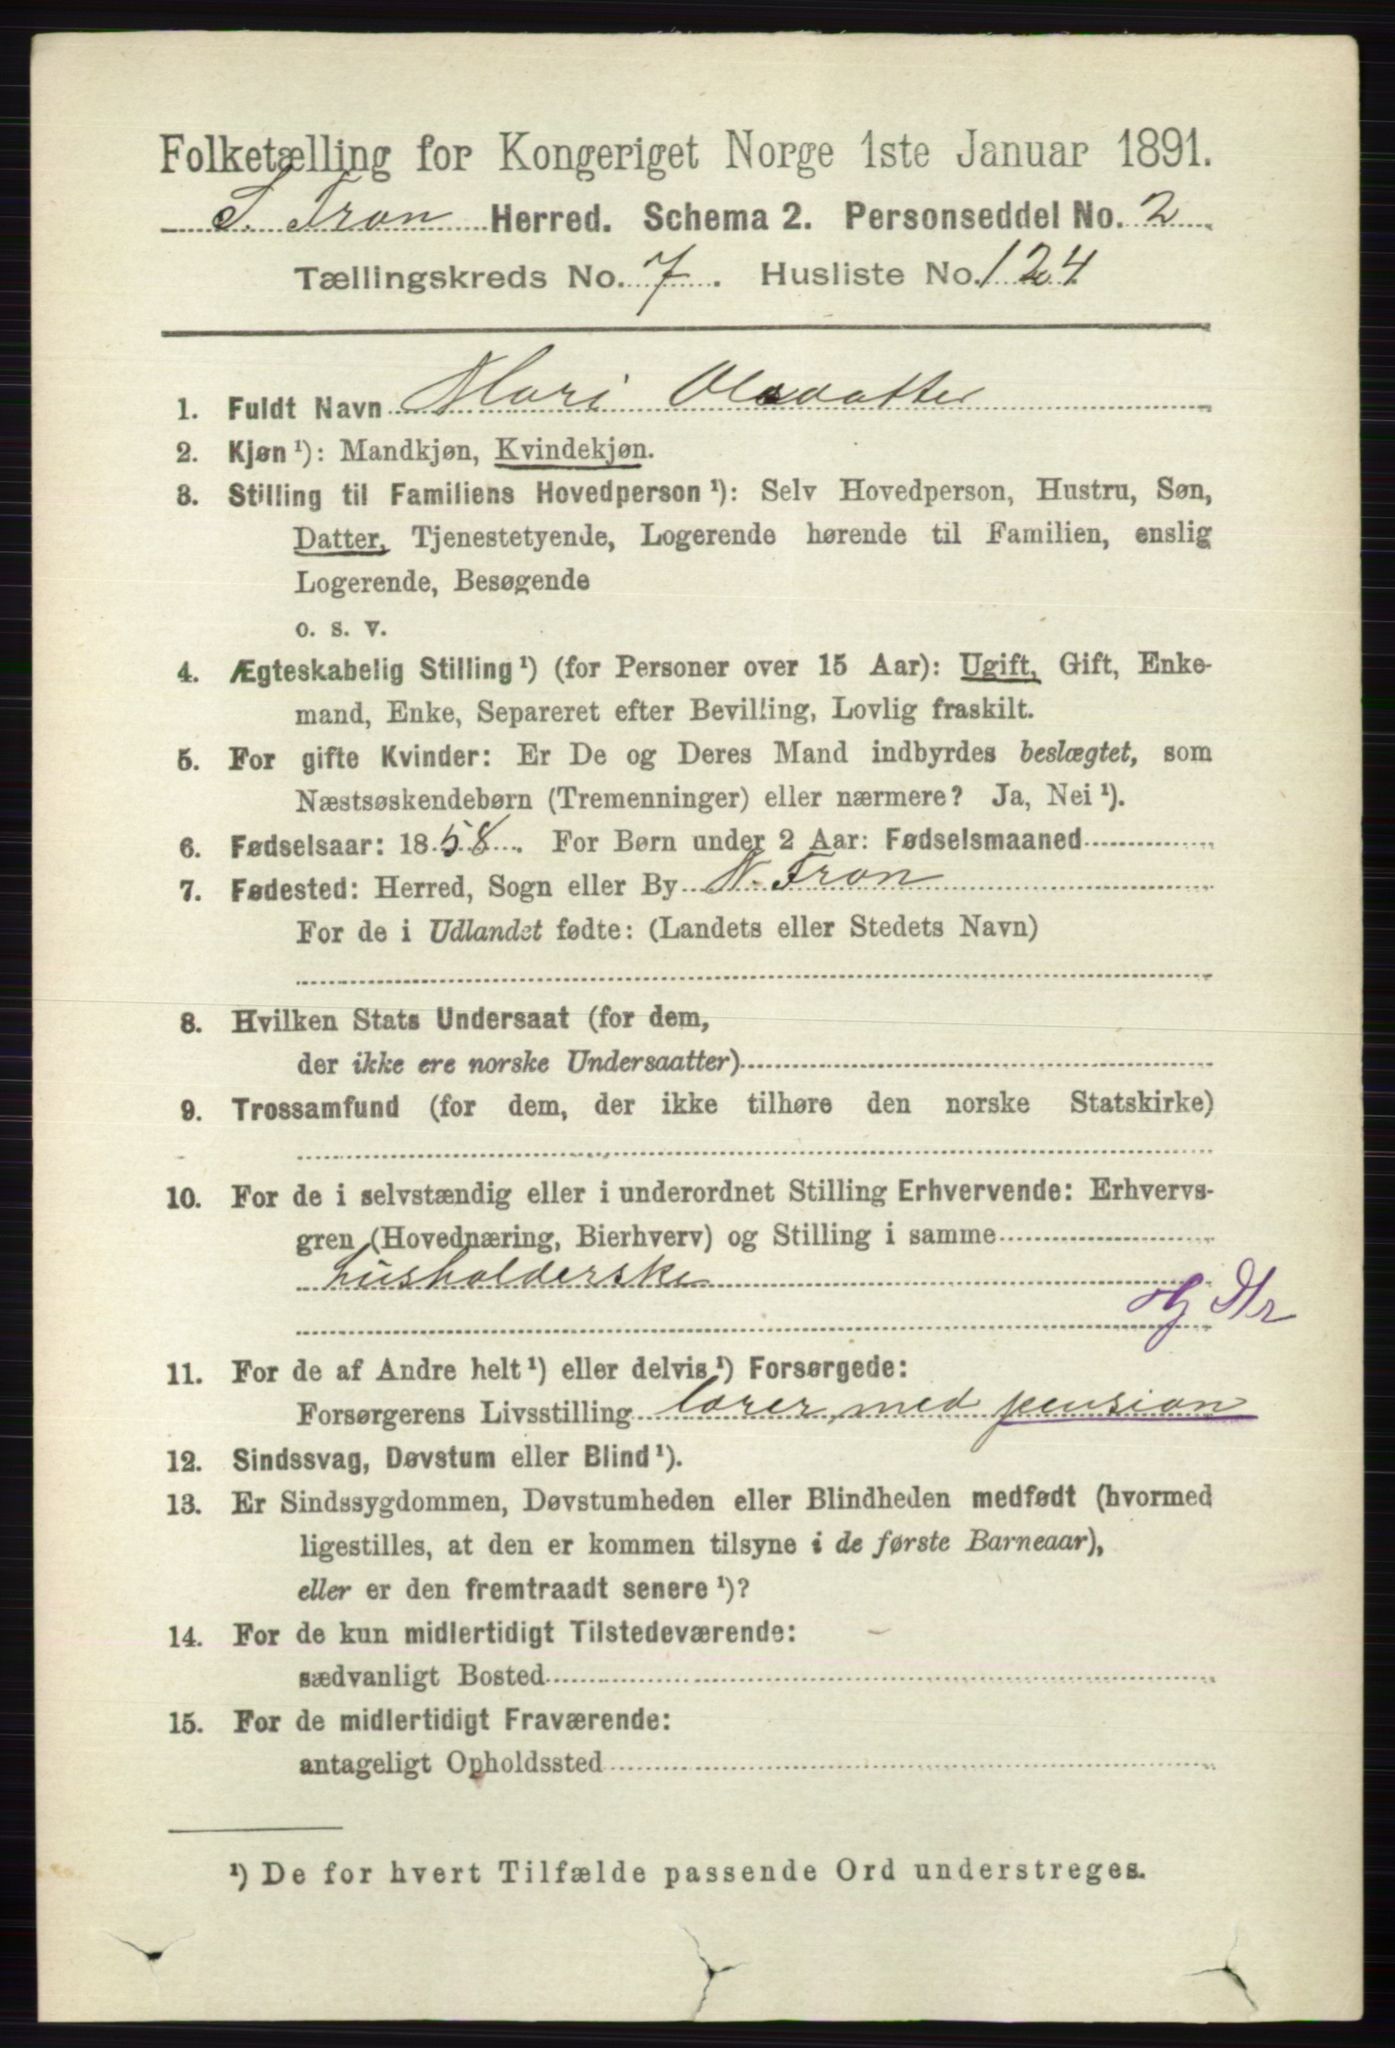 Folketælling for Kongeriget Norge 1ste Januar 1891.
S. Fron Herred. Schema 2. Personseddel No. 2
Tællingskreds No. 7. Husliste No. 124
1. Fuldt Navn Mari Olsdatter
2. Kjøn ¹): Mandkjøn, Kvindekjøn.
3. Stilling til Familiens Hovedperson ¹): Selv Hovedperson, Hustru, Søn,
Datter, Tjenestetyende, Logerende hørende til Familien, enslig
Logerende, Besøgende
o. s. v.
4. Ægteskabelig Stilling ¹) (for Personer over 15 Aar): Ugift, Gift, Enke-
mand, Enke, Separeret efter Bevilling, Lovlig fraskilt.
5. For gifte Kvinder: Er De og Deres Mand indbyrdes beslægtet, som
Næstsøskendebørn (Tremenninger) eller nærmere? Ja, Nei ¹).
6. Fødselsaar: 1858. For Børn under 2 Aar: Fødselsmaaned
7. Fødested: Herred, Sogn eller By N. Fron
For de i Udlandet fødte: (Landets eller Stedets Navn)
8. Hvilken Stats Undersaat (for dem,
der ikke ere norske Undersaatter)
9. Trossamfund (for dem, der ikke tilhøre den norske Statskirke)
10. For de i selvstændig eller i underordnet Stilling Erhvervende: Erhvervs-
gren (Hovednæring, Bierhverv) og Stilling i samme
husholderske
11. For de af Andre helt ¹) eller delvis ¹) Forsørgede:
Forsørgerens Livsstilling lærer med pension
12. Sindssvag, Døvstum eller Blind ¹).
13. Er Sindssygdommen, Døvstumheden eller Blindheden medfødt (hvormed
ligestilles, at den er kommen tilsyne i de første Barneaar),
eller er den fremtraadt senere ¹)?
14. For de kun midlertidigt Tilstedeværende:
sædvanligt Bosted
15. For de midlertidigt Fraværende:
antageligt Opholdssted
¹) De for hvert Tilfælde passende Ord understreges.